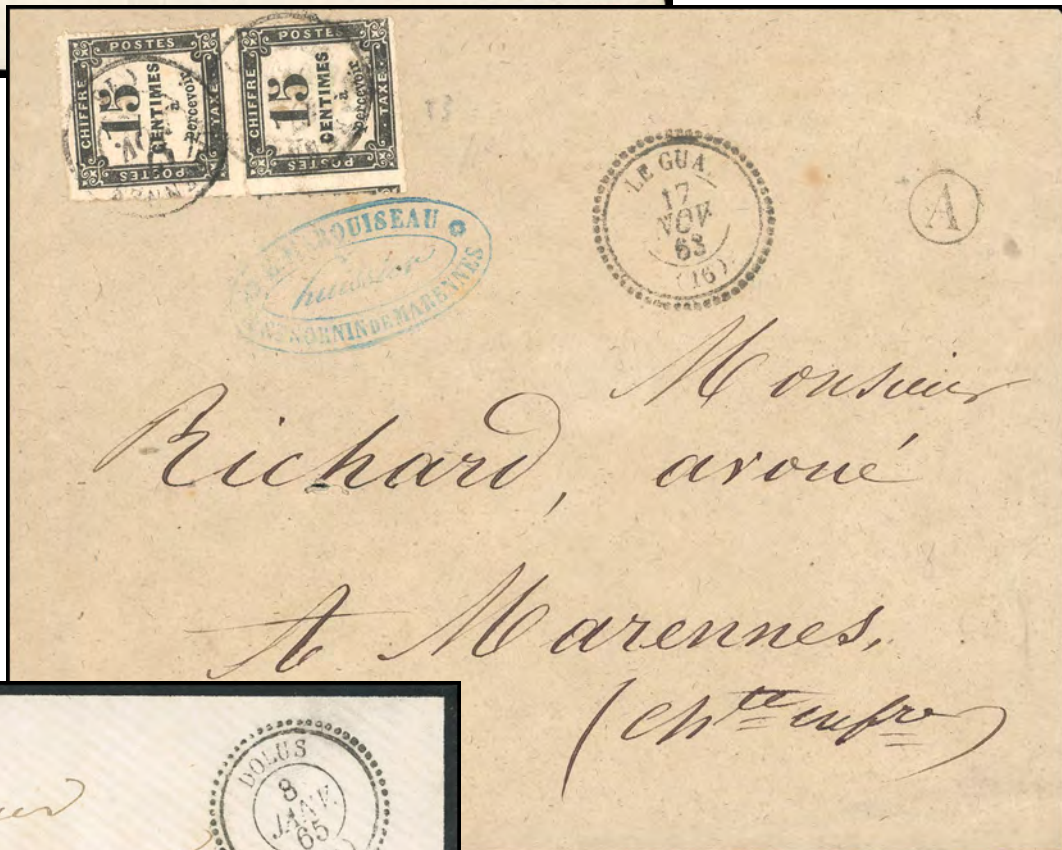 POSTES
CHIFFRE
15
CENTIMES
à
percevoir
TAXE
POSTES
POSTES
CHIFFRE
15
CENTIMES
à
percevoir
TAXE
POSTES
ROUISEAU
huissier
SORNIN DE MARENNES
LE GUA
17
NOV
68
(16)
A
Monsieur
Richard, avoué
A Marennes,
(Ch^te infre)
DOLUS
8
JANV.
65